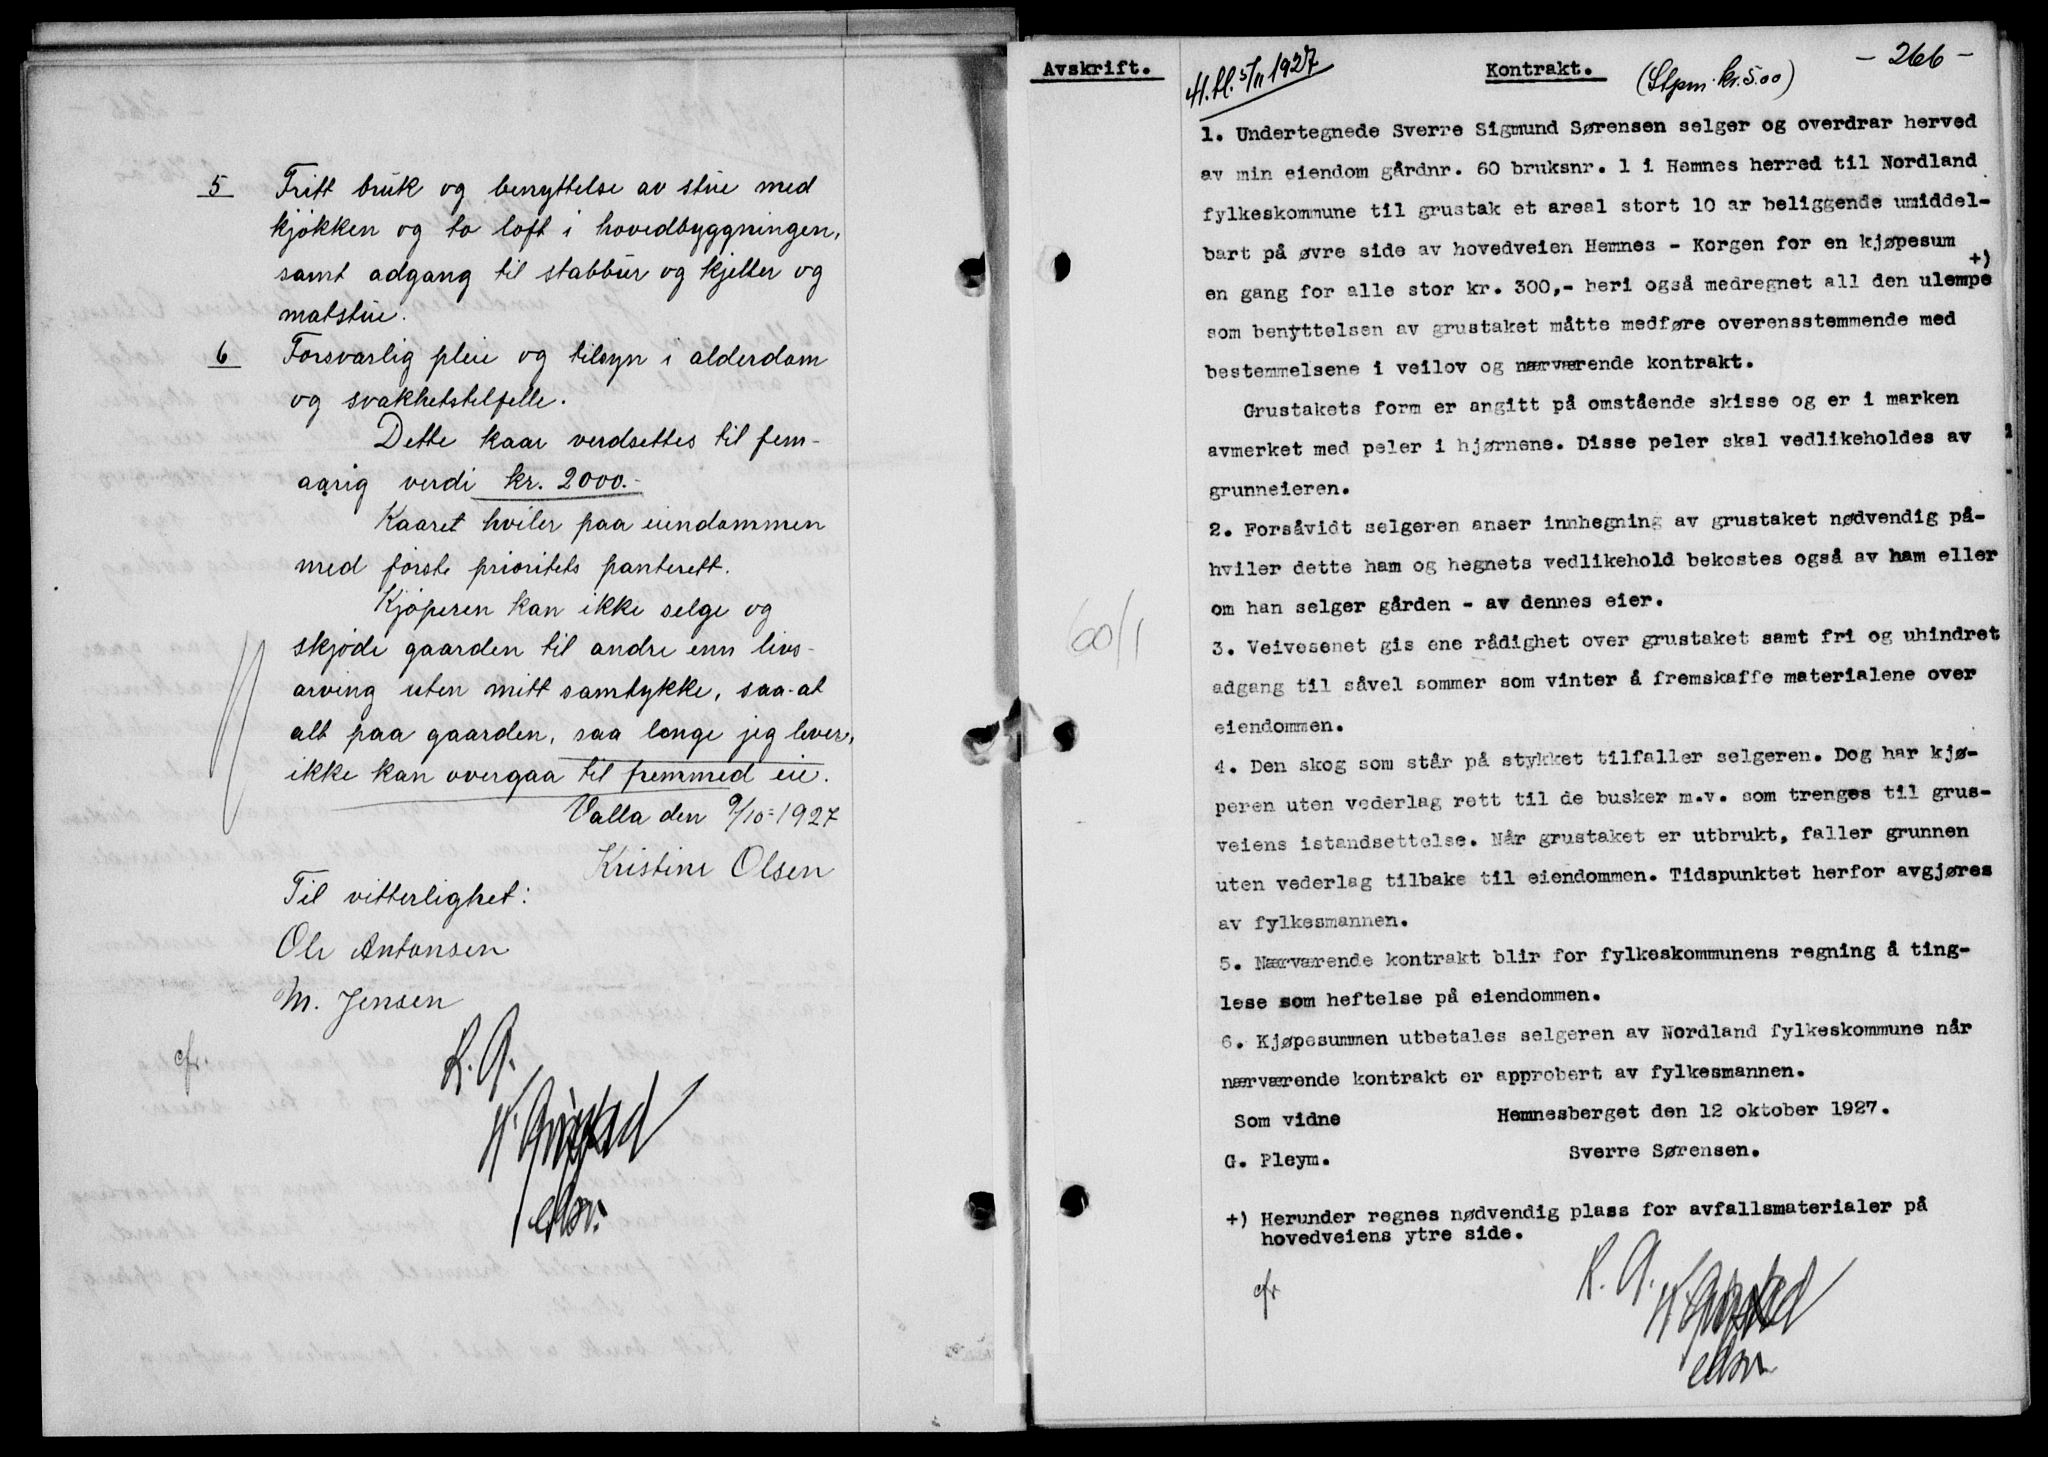 5 Fritt bruk og benyttelse av stue med
kjökken og to loft i hovedbyggningen,
samt adgang til stabbur og kjelter og
matstue.
6 Forsvarlig pleie og tilsyn i alderdom
og svakhetstilfelle.
Dette kaar verdsettes til fem-
aarig verdi kr. 2000.-
Kaaret hviler paa eiendommen
med förste prioritets panterett.
Kjöperen kan ikke selge og
skjöde gaarden til andre enn livs-
arving uten mitt samtykke, saa at
alt paa gaarden, saa lenge jeg lever,
ikke kan overgaa til fremmed eie.
Valla den 9/10-1927
Kristine Olsen
Til vitterlighet:
Ole Antonsen
M. Jensen
cfr.
R. A.
Avskrift. 5/11 1927 Kontrakt. (Stpm. kr. 5.00) - 266 -
1. Undertegnede Sverre Sigmund Sørensen selger og overdrar herved
av min eiendom gårdnr. 60 bruksnr. 1 i Hemnes herred til Nordland
fylkeskommune til grustak et areal stort 10 ar beliggende umiddel-
bart på øvre side av hovedveien Hemnes - Korgen for en kjøpesum
+)
en gang for alle stor kr. 300,- heri også medregnet all den ulempe
som benyttelsen av grustaket måtte medføre overensstemmende med
bestemmelsene i veilov og nærværende kontrakt.
Grustakets form er angitt på omstående skisse og er i marken
avmerket med peler i hjørnene. Disse peler skal vedlikeholdes av
grunneieren.
2. Forsåvidt selgeren anser innhegning av grustaket nødvendig på-
hviler dette ham og hegnets vedlikehold bekostes også av ham eller
om han selger gården - av dennes eier.
60/1
3. Veivesenet gis ene rådighet over grustaket samt fri og uhindret
adgang til såvel sommer som vinter å fremskaffe materialene over
eiendommen.
4. Den skog som står på stykket tilfaller selgeren. Dog har kjø-
peren uten vederlag rett til de busker m.v. som trenges til grus-
veiens istandsettelse. Når grustaket er utbrukt, faller grunnen
uten vederlag tilbake til eiendommen. Tidspunktet herfor avgjøres
av fylkesmannen.
5. Nærværende kontrakt blir for fylkeskommunens regning å ting-
lese som heftelse på eiendommen.
6. Kjøpesummen utbetales selgeren av Nordland fylkeskommune når
nærværende kontrakt er approbert av fylkesmannen.
Som vidne Hemnesberget den 12 oktober 1927.
G. Pleym. Sverre Sørensen.
+) Herunder regnes nødvendig plass for avfallsmaterialer på
hovedveiens ytre side.
cfr
R. A.